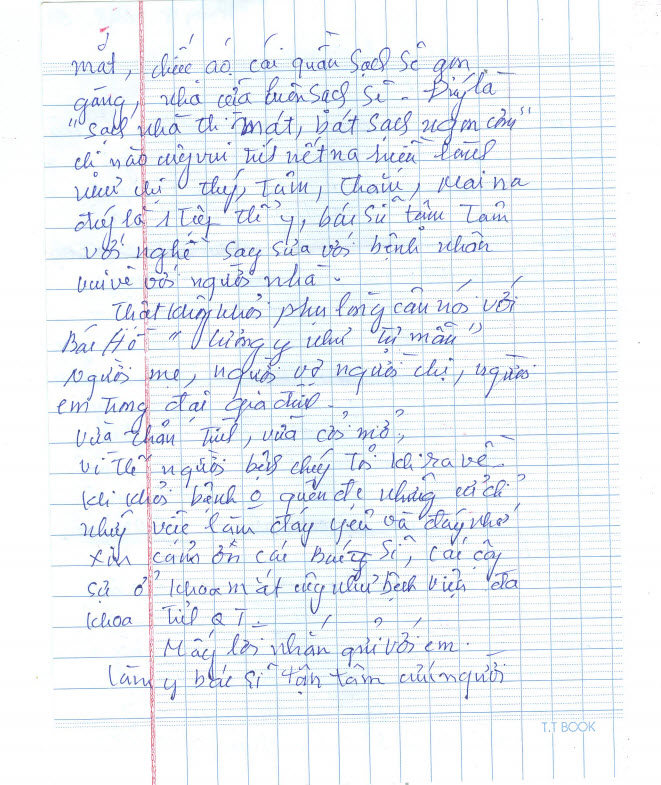 mát, chiếc áo cái quần sạch sẽ gọn
gàng, nhà cửa luôn sạch sẽ. Đúng là
"sạch nhà thì mát, bát sạch ngon cơm"
chị nào cũng vui tính nết na hiền lành
như chị Thuý, Tâm, Thắm, Mai na
đúng là 1 tiếp thể y, bác sĩ tâm Tâm
với nghề say sưa với bệnh nhân
vui vẻ với người nhà.
Thật không khỏi phụ lòng câu nói với
Bác Hồ "lương y như từ mẫu"
Người mẹ, người vợ người chị, người
em trong đại gia đình.
vừa thân tình, vừa cởi mở,
vì thế người bệnh chúng tôi khi ra về
khi khỏi bệnh o quên để những cử chỉ
những việc làm đáng yêu và đáng nhớ
xin cảm ơn các Bác y sĩ, các cậy
sự ở khoa mắt cũng như bệnh viện đa
khoa Tỉnh QT.
Mấy lời nhắn gửi với em.
làm y bác sĩ tận tâm cứu người
T.T BOOK